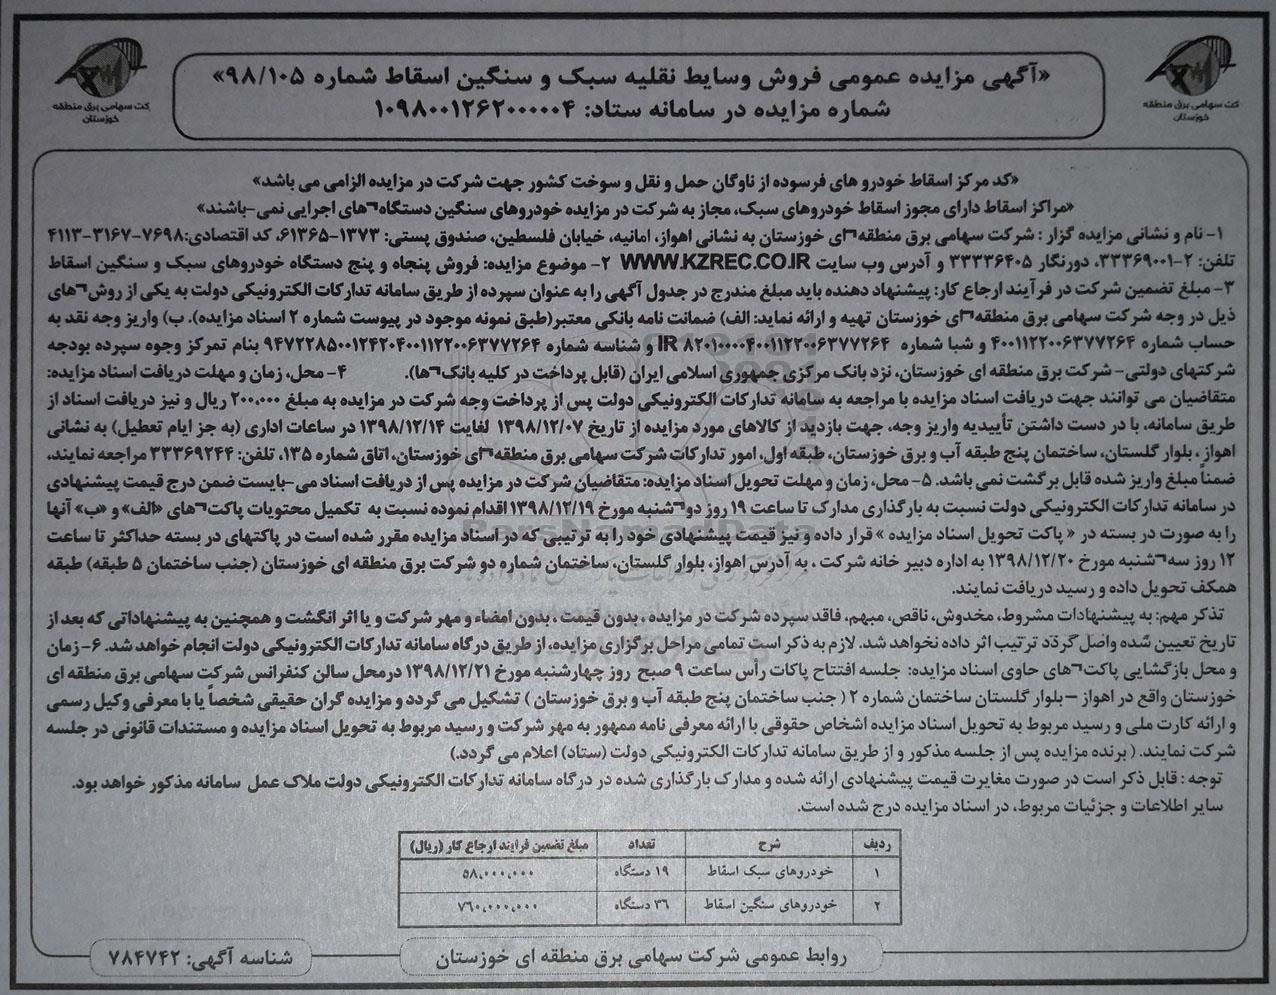 شرکت سهامی برق منطقه
خوزستان
«آگهی مزایده عمومی فروش وسایط نقلیه سبک و سنگین اسقاط شماره ۹۸/۱۰۵»
شماره مزایده در سامانه ستاد: ۱۰۹۸۰۰۱۲۶۲۰۰۰۰۰۴
کت سهامی برق منطقه
خوزستان
«کد مرکز اسقاط خودرو های فرسوده از ناوگان حمل و نقل و سوخت کشور جهت شرکت در مزایده الزامی می باشد»
«مراکز اسقاط دارای مجوز اسقاط خودروهای سبک، مجاز به شرکت در مزایده خودروهای سنگین دستگاه¬های اجرایی نمی-باشند»
۱- نام و نشانی مزایده گزار : شرکت سهامی برق منطقه¬ای خوزستان به نشانی اهواز، امانیه، خیابان فلسطین، صندوق پستی: ۱۳۷۳-۶۱۳۶۵، کد اقتصادی:۷۶۹۸-۳۱۶۷-۴۱۱۳
تلفن: ۲-۳۳۳۶۹۰۰۱، دورنگار ۳۳۳۳۶۴۰۵ و آدرس وب سایت WWW.KZREC.CO.IR ۲- موضوع مزایده: فروش پنجاه و پنج دستگاه خودروهای سبک و سنگین اسقاط
۳- مبلغ تضمین شرکت در فرآیند ارجاع کار: پیشنهاد دهنده باید مبلغ مندرج در جدول آگهی را به عنوان سپرده از طریق سامانه تدارکات الکترونیکی دولت به یکی از روش¬های
ذیل در وجه شرکت سهامی برق منطقه¬ای خوزستان تهیه و ارائه نماید: الف) ضمانت نامه بانکی معتبر(طبق نمونه موجود در پیوست شماره ۲ اسناد مزایده). ب) واریز وجه نقد به
حساب شماره ۴۰۰۱۱۲۲۰۰۶۳۷۷۲۶۴ و شبا شماره IR ۸۲۰۱۰۰۰۰۴۰۰۱۱۲۲۰۰۶۳۷۷۲۶۴ و شناسه شماره ۹۴۷۲۲۸۵۰۰۱۲۴۲۰۴۰۰۱۱۲۲۰۰۶۳۷۷۲۶۴ بنام تمرکز وجوه سپرده بودجه
شرکتهای دولتی- شرکت برق منطقه ای خوزستان، نزد بانک مرکزی جمهوری اسلامی ایران (قابل پرداخت در کلیه بانک¬ها). ۴- محل، زمان و مهلت دریافت اسناد مزایده:
متقاضیان می توانند جهت دریافت اسناد مزایده با مراجعه به سامانه تدارکات الکترونیکی دولت پس از پرداخت وجه شرکت در مزایده به مبلغ ۲۰۰,۰۰۰ ریال و نیز دریافت اسناد از
طریق سامانه، با در دست داشتن تأییدیه واریز وجه، جهت بازدید از کالاهای مورد مزایده از تاریخ ۱۳۹۸/۱۲/۰۷ لغایت ۱۳۹۸/۱۲/۱۴ در ساعات اداری (به جز ایام تعطیل) به نشانی
اهواز ، بلوار گلستان، ساختمان پنج طبقه آب و برق خوزستان، طبقه اول، امور تدارکات شرکت سهامی برق منطقه¬ای خوزستان، اتاق شماره ۱۳۵، تلفن: ۳۳۳۶۹۲۴۴ مراجعه نمایند،
ضمناً مبلغ واریز شده قابل برگشت نمی باشد. ۵- محل، زمان و مهلت تحویل اسناد مزایده: متقاضیان شرکت در مزایده پس از دریافت اسناد می-بایست ضمن درج قیمت پیشنهادی
در سامانه تدارکات الکترونیکی دولت نسبت به بارگذاری مدارک تا ساعت ۱۹ روز دو¬شنبه مورخ ۱۳۹۸/۱۲/۱۹ اقدام نموده نسبت به تکمیل محتویات پاکت¬های «الف» و «ب» آنها
را به صورت در بسته در « پاکت تحویل اسناد مزایده » قرار داده و نیز قیمت پیشنهادی خود را به ترتیبی که در اسناد مزایده مقرر شده است در پاکتهای در بسته حداکثر تا ساعت
۱۲ روز سه¬شنبه مورخ ۱۳۹۸/۱۲/۲۰ به اداره دبیر خانه شرکت ، به آدرس اهواز، بلوار گلستان، ساختمان شماره دو شرکت برق منطقه ای خوزستان (جنب ساختمان ۵ طبقه) طبقه
همکف تحویل داده و رسید دریافت نمایند.
تذکر مهم: به پیشنهادات مشروط، مخدوش، ناقص، مبهم، فاقد سپرده شرکت در مزایده ، بدون قیمت ، بدون امضاء و مهر شرکت و یا اثر انگشت و همچنین به پیشنهاداتی که بعد از
تاریخ تعیین شده واصل گردد ترتیب اثر داده نخواهد شد. لازم به ذکر است تمامی مراحل برگزاری مزایده، از طریق درگاه سامانه تدارکات الکترونیکی دولت انجام خواهد شد. ۶- زمان
و محل بازگشایی پاکت¬های حاوی اسناد مزایده: جلسه افتتاح پاکات رأس ساعت ۹ صبح روز چهارشنبه مورخ ۱۳۹۸/۱۲/۲۱ درمحل سالن کنفرانس شرکت سهامی برق منطقه ای
خوزستان واقع در اهواز – بلوار گلستان ساختمان شماره ۲ ( جنب ساختمان پنج طبقه آب و برق خوزستان ) تشکیل می گردد و مزایده گران حقیقی شخصاً یا با معرفی وکیل رسمی
و ارائه کارت ملی و رسید مربوط به تحویل اسناد مزایده اشخاص حقوقی با ارائه معرفی نامه ممهور به مهر شرکت و رسید مربوط به تحویل اسناد مزایده و مستندات قانونی در جلسه
شرکت نمایند. ( برنده مزایده پس از جلسه مذکور و از طریق سامانه تدارکات الکترونیکی دولت (ستاد) اعلام می گردد.)
توجه : قابل ذکر است در صورت مغایرت قیمت پیشنهادی ارائه شده و مدارک بارگذاری شده در درگاه سامانه تدارکات الکترونیکی دولت ملاک عمل سامانه مذکور خواهد بود.
سایر اطلاعات و جزئیات مربوط، در اسناد مزایده درج شده است.
ردیف شرح تعداد مبلغ تضمین فرایند ارجاع کار (ریال)
۱ خودروهای سبک اسقاط ۱۹ دستگاه ۵۸,۰۰۰,۰۰۰
۲ خودروهای سنگین اسقاط ۳۶ دستگاه ۷۶۰,۰۰۰,۰۰۰
روابط عمومی شرکت سهامی برق منطقه ای خوزستان
شناسه آگهی: ۷۸۴۷۴۲
ParsNamadData